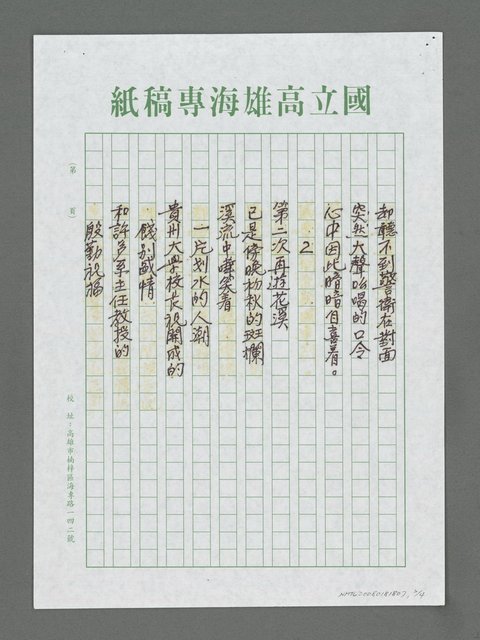 國立高雄海專稿紙
(第 頁)
却聽不到警衛在對面
突然大聲吆喝的口令
心中因此暗暗自喜着。
2
第二次再遊花溪
已是傍晚初秋的斑斕
溪流中嘩笑着
一片划水的人潮
貴州大學校長設開成的
餞別盛情
和許多系主任教授的
殷勤祝福
校 址：高雄市楠梓區海專路一四二號